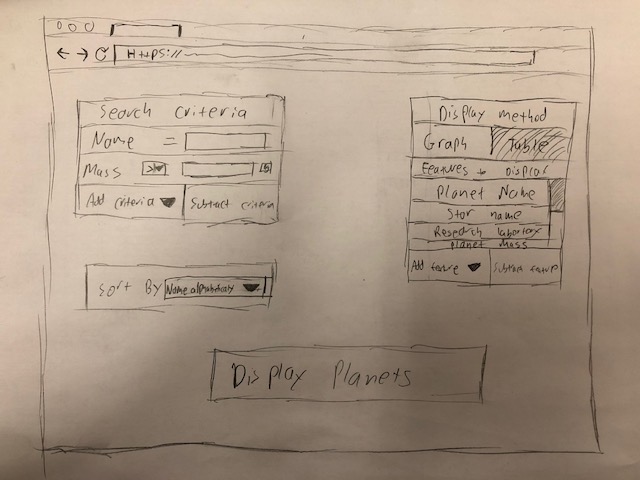 Https://
Search criteria
Name =
Mass >
Add criteria
Subtract criteria
Sort By
Display method
Graph
Table
Features to display
Planet Name
Star name
Planet Mass
Add feature
Subtract feature
Display Planets